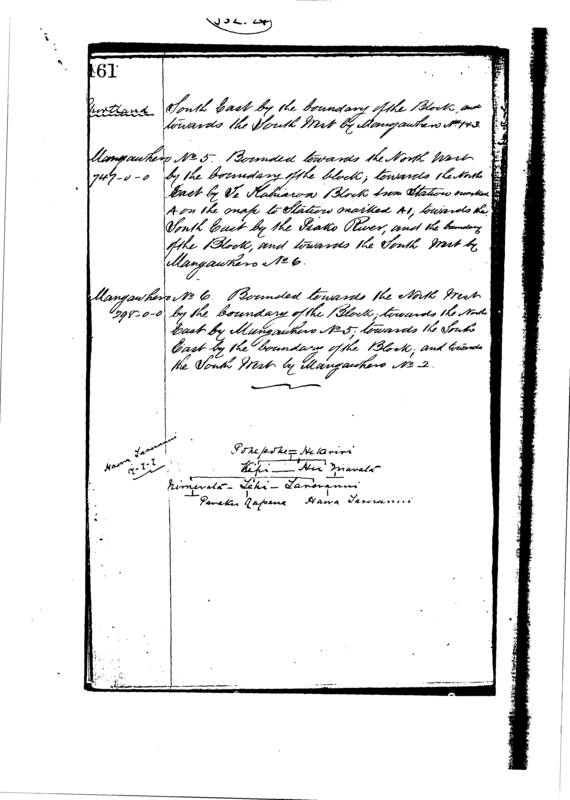 161
Shortland South East by the boundary of the Block, and
towards the South West by Mangawhero No 1 & 3
Mangawhero No 5. Bounded towards the North West
747-0-0 by the boundary of the block; towards the North
East by Te Kahiaroa Block from Station marked
A on the map to Station marked A1, towards the
South East by the Piako River, and the boundary
of the Block, and towards the South West by
Mangawhero No 6.
Mangawhero No 6. Bounded towards the North West
298-0-0 by the boundary of the Block; towards the North
East by Mangawhero No 5, towards the South
East by the boundary of the Block; and towards
the South West by Mangawhero No 2.
Pokepoke = Hekiriri
Kepi Hui